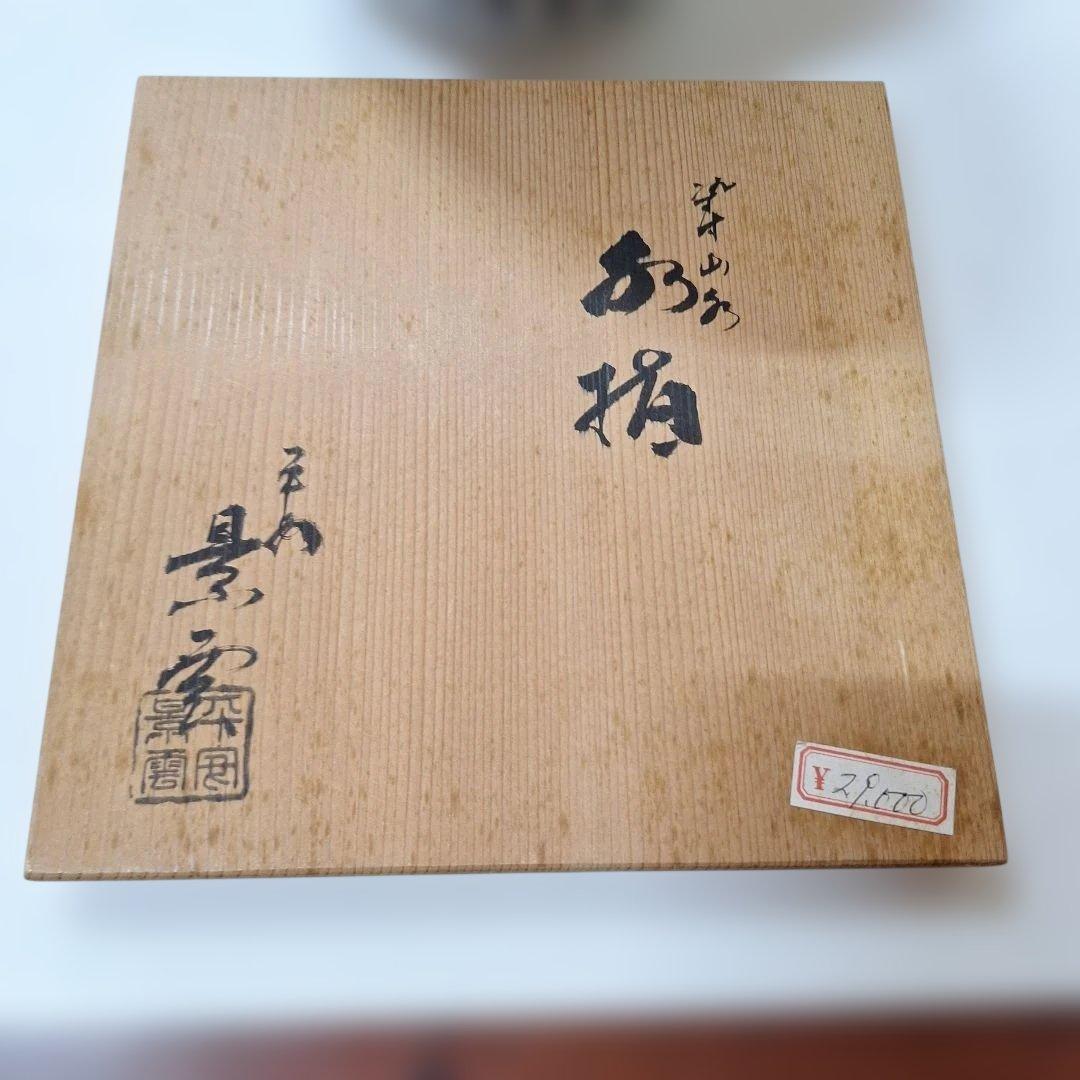 染付山水
水指
平安
景雲
平安
景雲
¥29,000